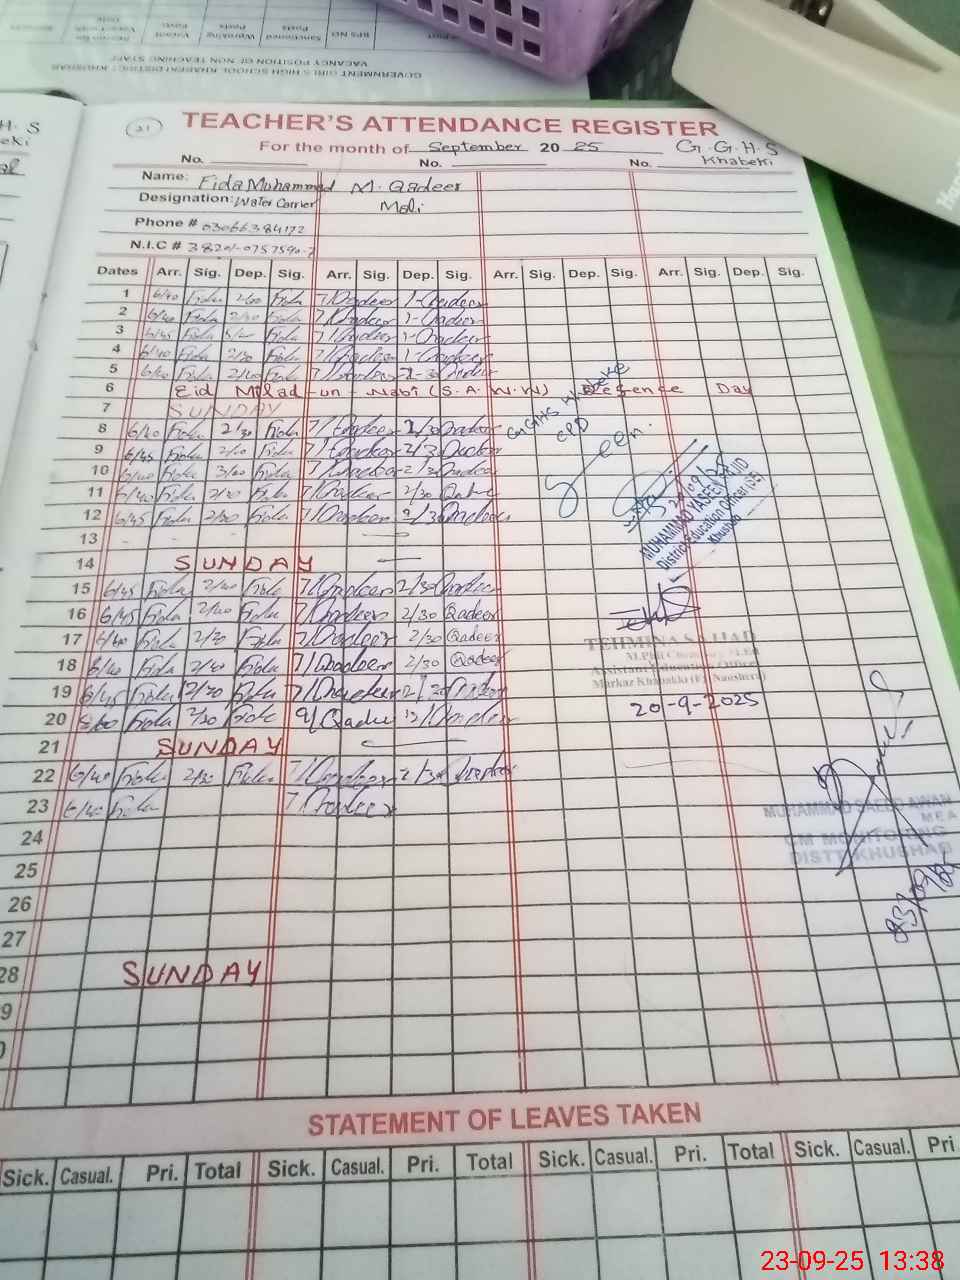 GOVERNMENT GIRLS HIGH SCHOOL KHABEKI DISTRICT KHUSHAB
VACANCY POSITION OF NON TEACHING STAFF
BPS NO Sanctioned Posts Working Posts Vacant Posts
H. S
eki
21
TEACHER'S ATTENDANCE REGISTER
For the month of September 2025 G.G.H.S
No. No. No. Khabeki
Name: Fida Muhammad M. Qadeer
Designation: Water Carrier Mali
Phone # 03066384172
N.I.C # 38201-0757590-7
Dates Arr. Sig. Dep. Sig. Arr. Sig. Dep. Sig. Arr. Sig. Dep. Sig. Arr. Sig. Dep. Sig.
1 6/40 Fida 2/00 Fida 7/ Qadeer 1- Qadeer
2 6/40 Fida Fida 7/ Qadeer 1- Qadeer
3 6/45 Fida Fida 7/ Qadeer 1- Qadeer
4 6/40 Fida 2/30 Fida 7/ Qadeer 1- Qadeer
5 6/40 Fida 2/40 Fida 7/ Qadeer Qadeer
6 Eid Milad-un-Nabi (S.A.W.W) Defence Day
7 SUNDAY
8 6/40 Fida 2/30 Fida 7/ Qadeer 2/30 Qadeer
9 6/45 Fida Fida 7/ Qadeer 2/30 Qadeer
10 6/40 Fida Fida 7/ Qadeer 2/30 Qadeer
11 6/40 Fida Fida 7/ Qadeer 2/30 Qadeer
12 6/45 Fida 2/30 Fida 7/ Qadeer 2/30 Qadeer
13
14 SUNDAY
15 6/45 Fida 2/40 Fida 7/ Qadeer 2/30 Qadeer
16 6/45 Fida 2/40 Fida 7/ Qadeer 2/30 Qadeer
17 6/40 Fida 2/30 Fida 7/ Qadeer 2/30 Qadeer
18 6/40 Fida 2/40 Fida 7/ Qadeer 2/30 Qadeer
19 6/45 Fida 2/30 Fida 7/ Qadeer 2/30 Qadeer
20 Fida 2/30 Fida 9/ Qadeer 12/ Qadeer
21 SUNDAY
22 6/40 Fida 2/30 Fida 7/ Qadeer 2/30 Qadeer
23 6/40 Fida 7/ Qadeer
24
25
26
27
28 SUNDAY
9
0
GGHS Khabeke
MUHAMMAD YASEEN
District Education Officer (SE)
Khushab
TEHMINA SAJJAD
Assistant Education Officer
Markaz Khabakki (F) Naushera
20-9-2025
MUHAMMAD SAEED AWAN
MEA
CM MONITORING
DISTT KHUSHAB
23/09/25
STATEMENT OF LEAVES TAKEN
Sick. Casual. Pri. Total Sick. Casual. Pri. Total Sick. Casual. Pri. Total Sick. Casual. Pri.
23-09-25 13:38